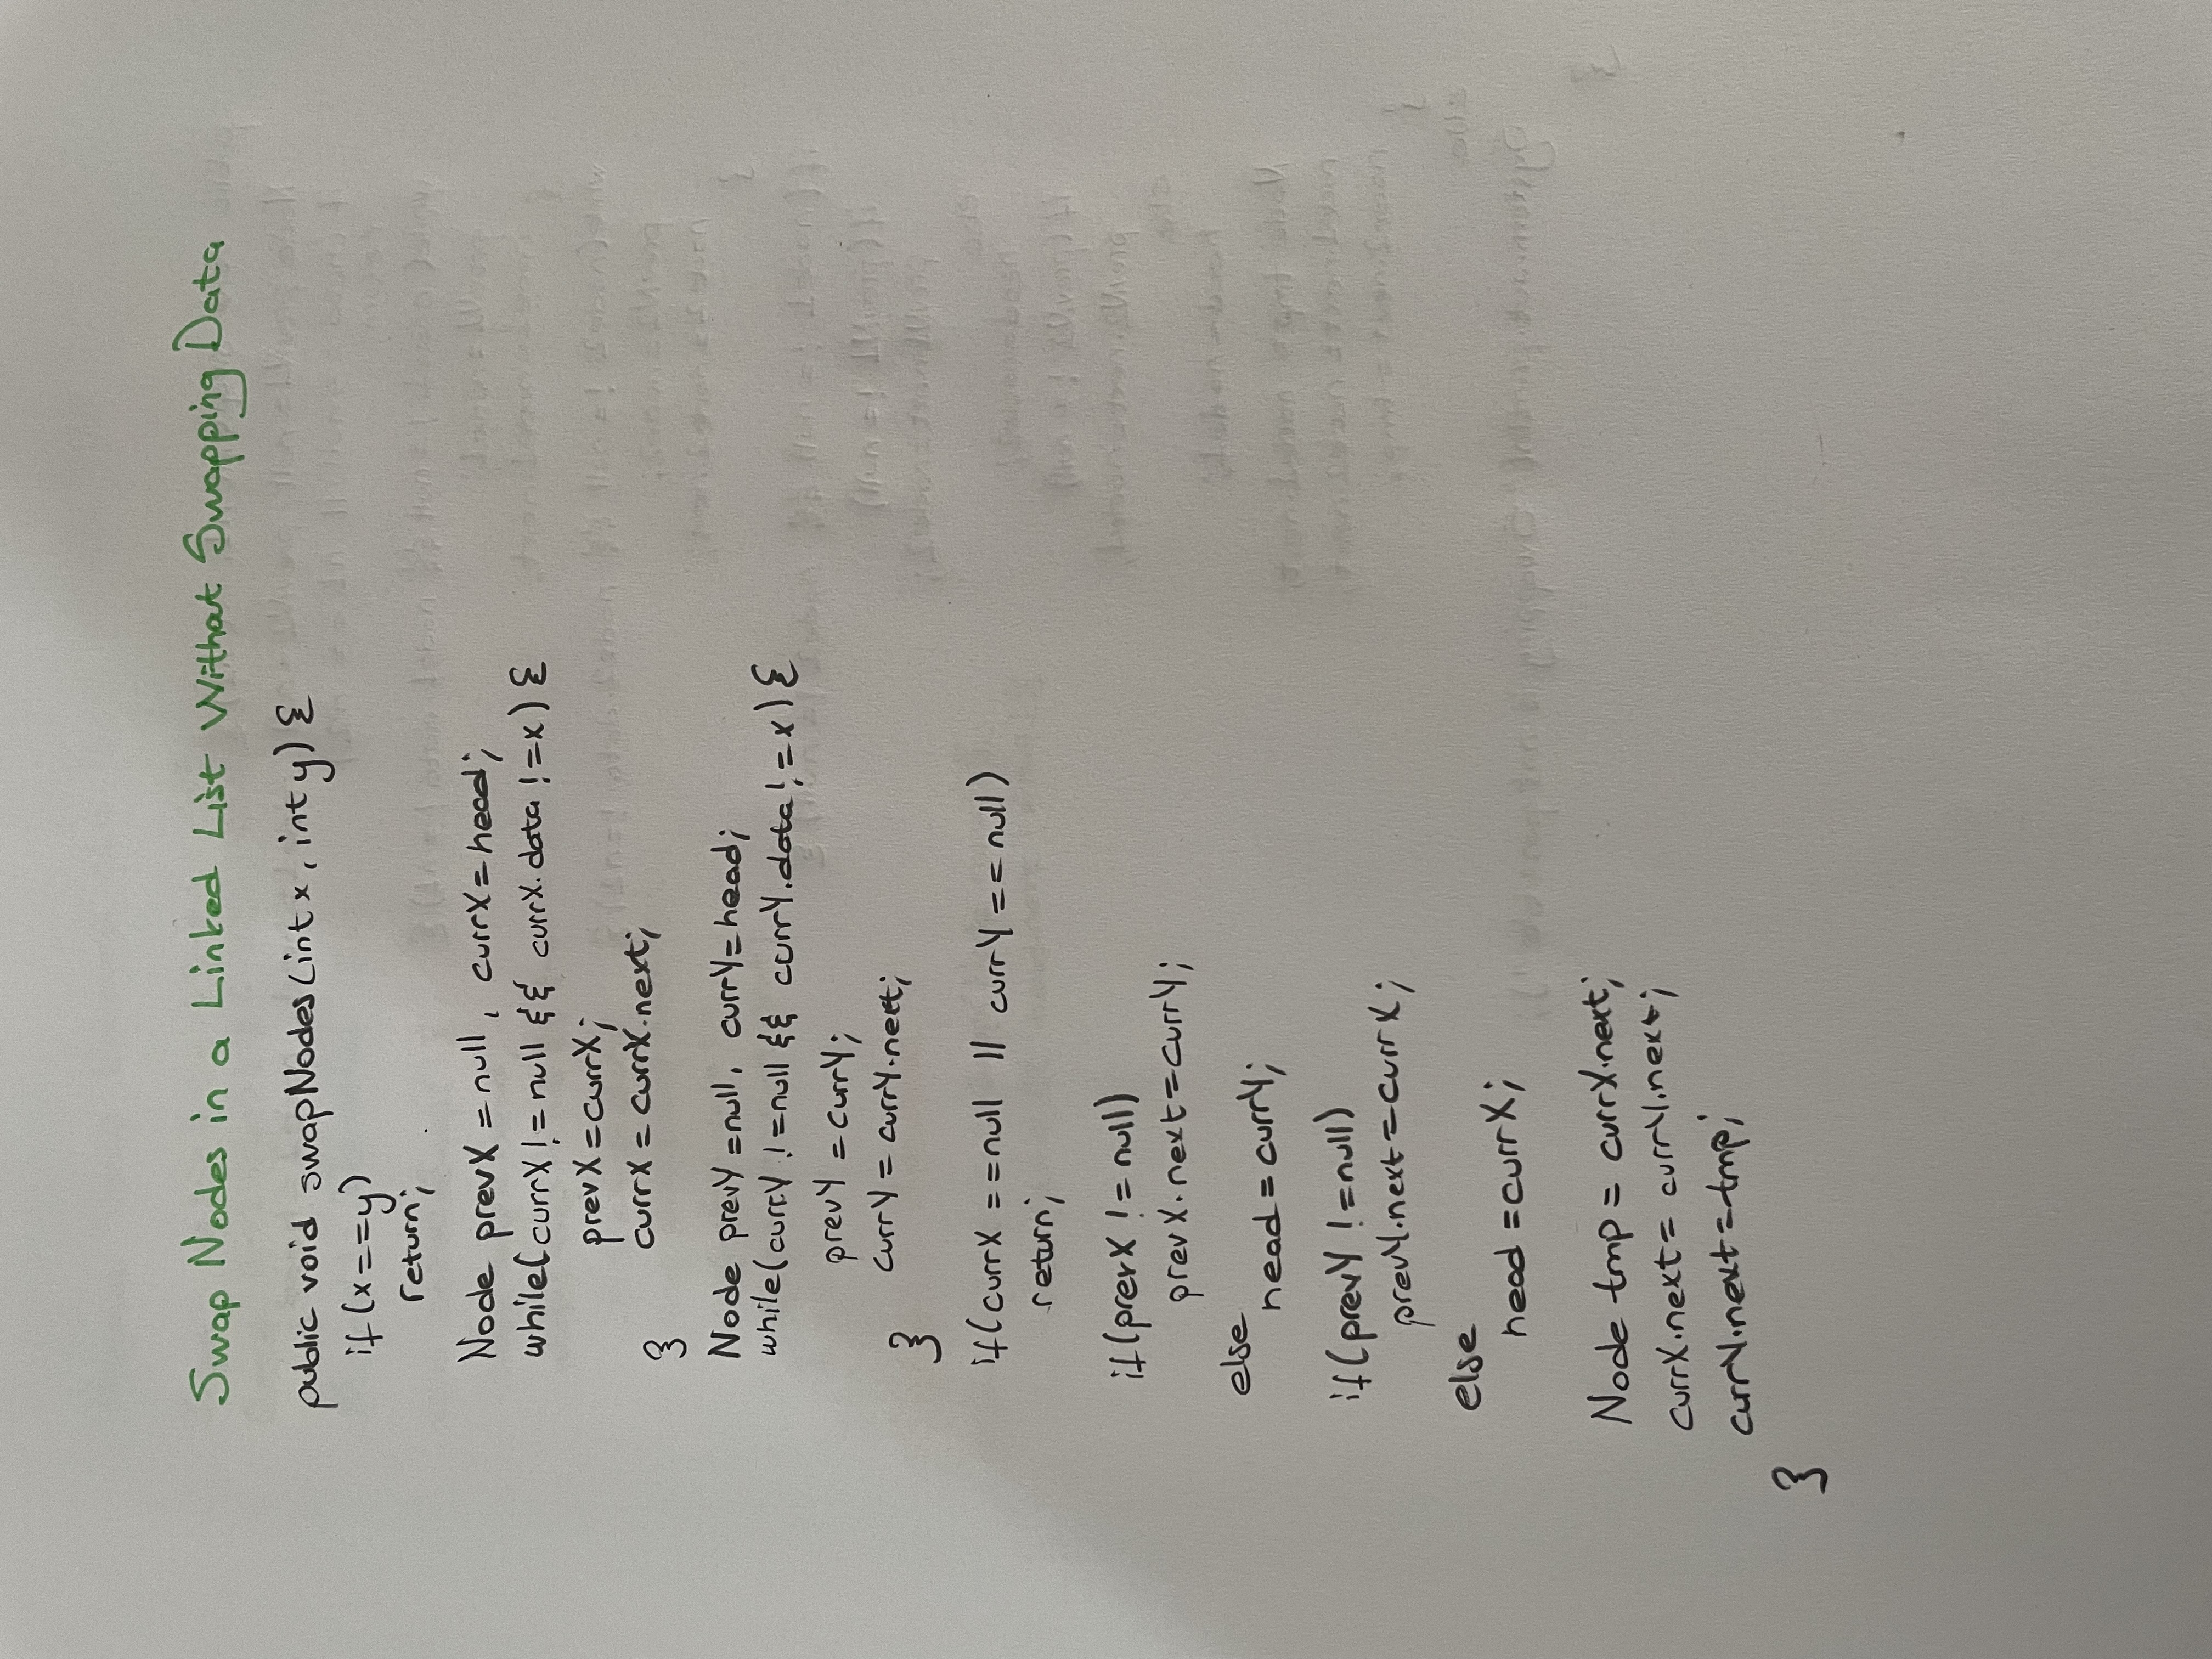 Swap Nodes in a Linked List Without Swapping Data
public void swapNodes(int x, int y) {
if (x==y)
return;
Node prevX = null, currX = head;
while(currX != null && currX.data != x) {
prevX = currX;
currX = currX.next;
}
Node prevY = null, currY = head;
while(currY != null && currY.data != x) {
prevY = currY;
currY = currY.next;
}
if(currX == null || currY == null)
return;
if(prevX != null)
prevX.next = currY;
else
head = currY;
if(prevY != null)
prevY.next = currX;
else
head = currX;
Node tmp = currX.next;
currX.next = currY.next;
currY.next = tmp;
}